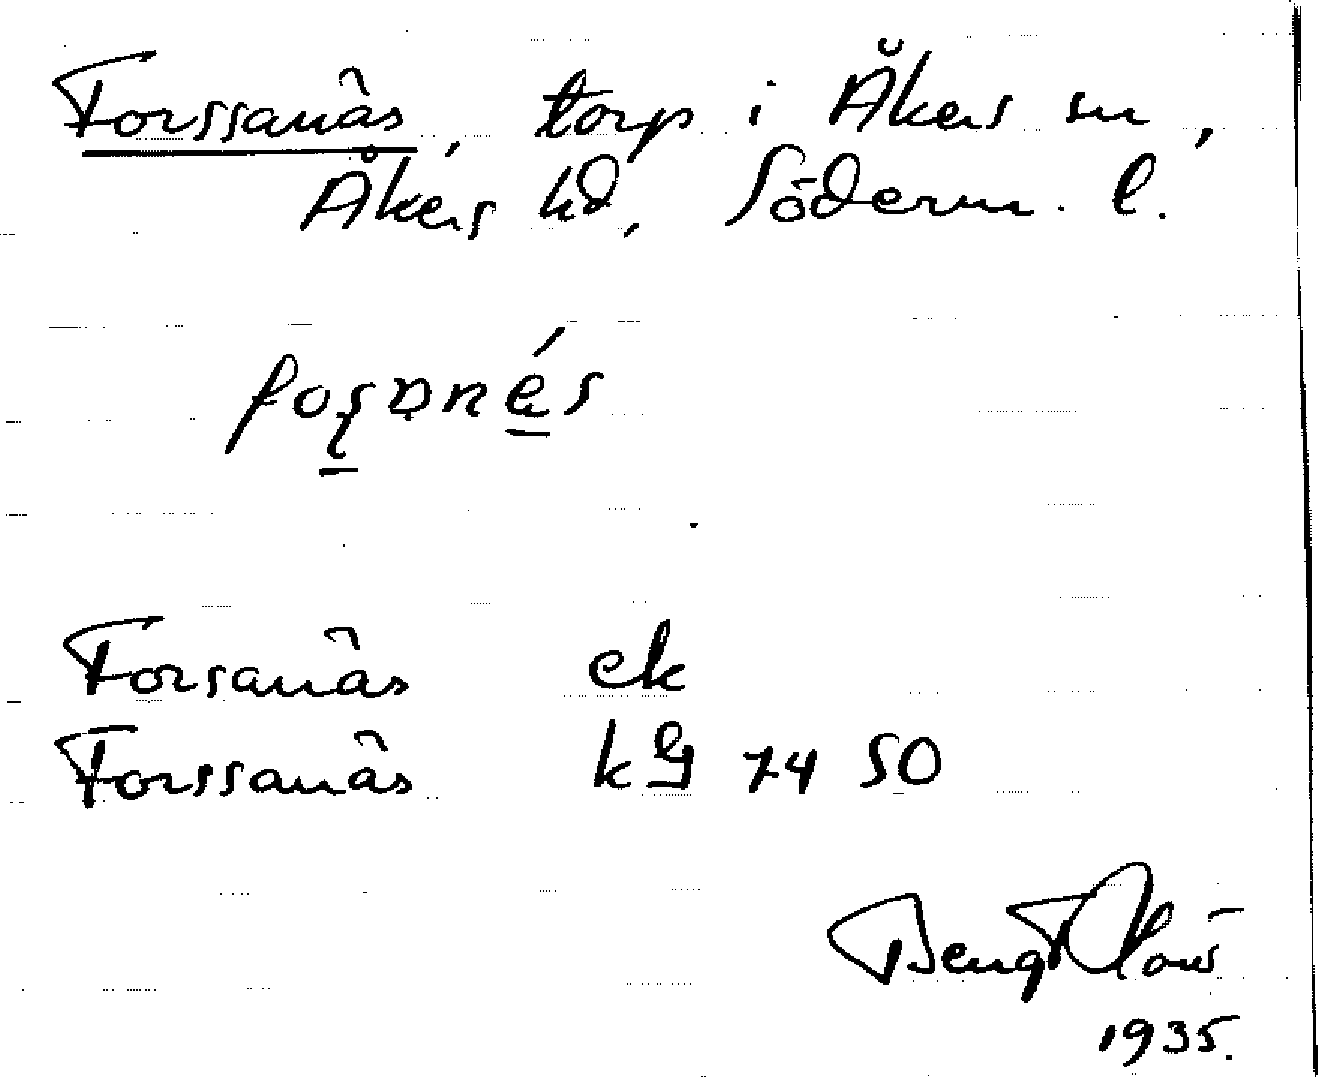 Forssanäs, torp i Åkers sn,
Åkers hd, Söderm. l.
Forsanäs ek
Forssanäs kG 74 SO
Bengt
1935.